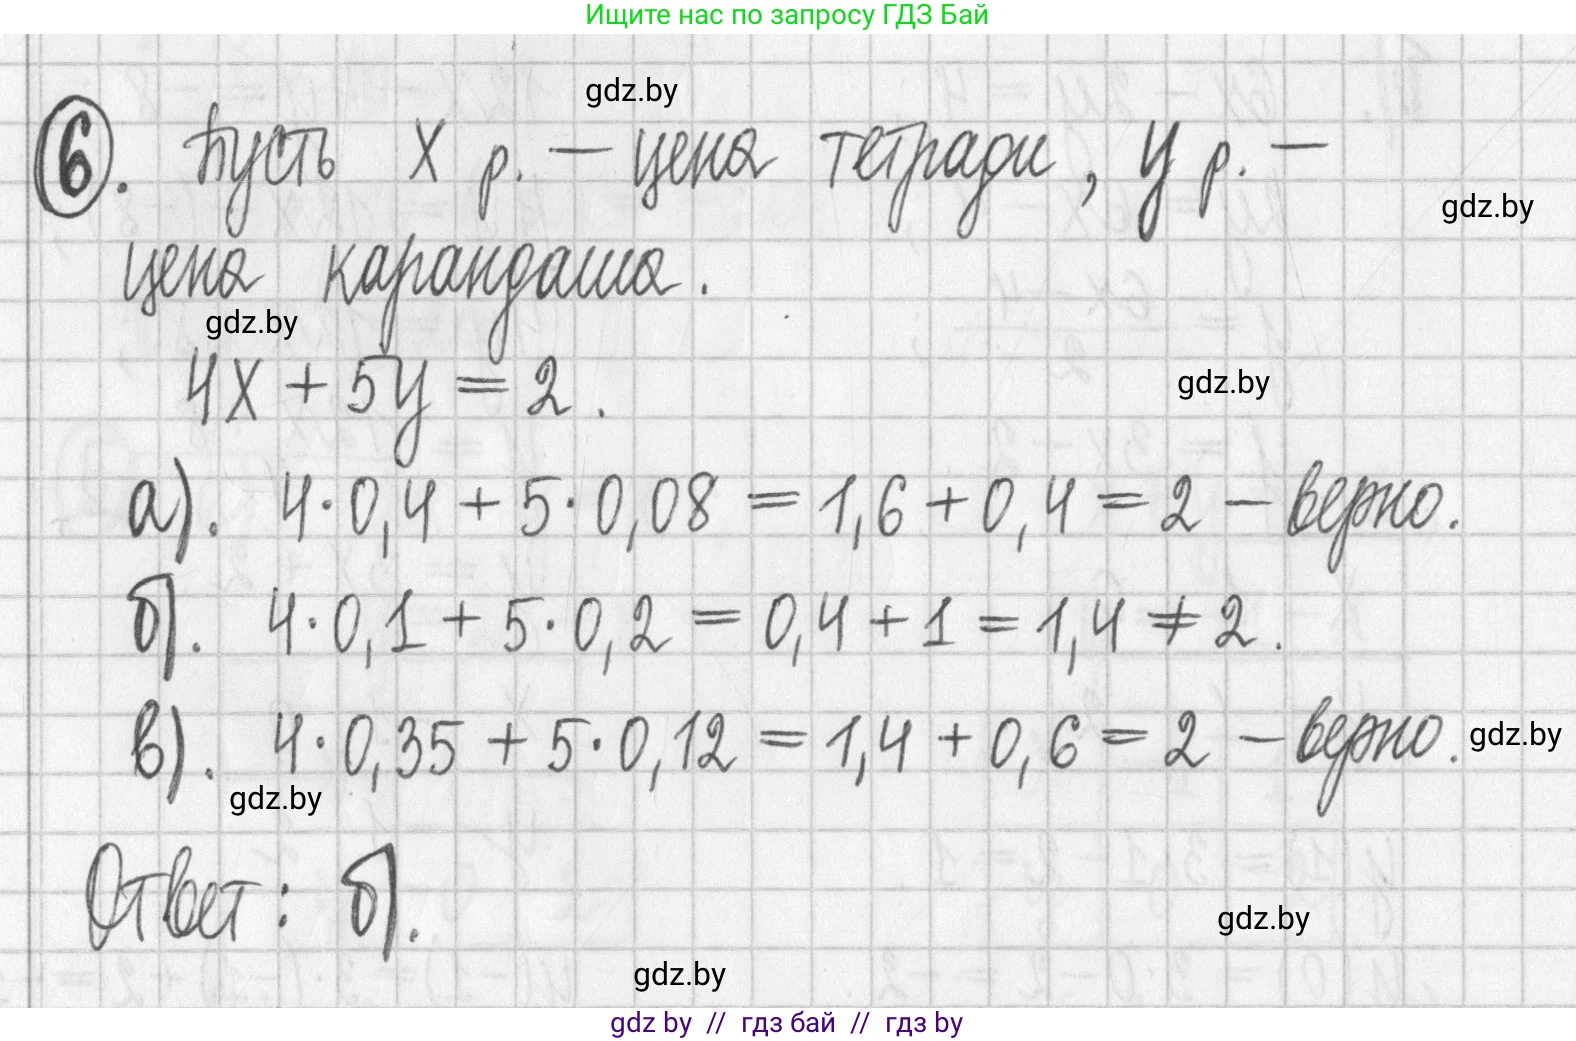 Ищите нас по запросу ГДЗ Бай
gdz.by
6. Пусть x р. — цена тетради, y р. —
gdz.by
цена карандаша.
gdz.by
4x + 5y = 2.
gdz.by
а). 4·0,4 + 5·0,08 = 1,6 + 0,4 = 2 — верно.
б). 4·0,1 + 5·0,2 = 0,4 + 1 = 1,4 ≠ 2.
в). 4·0,35 + 5·0,12 = 1,4 + 0,6 = 2 — верно.
gdz.by
gdz.by
Ответ: б).
gdz.by
gdz.by
gdz by // гдз бай // гдз by